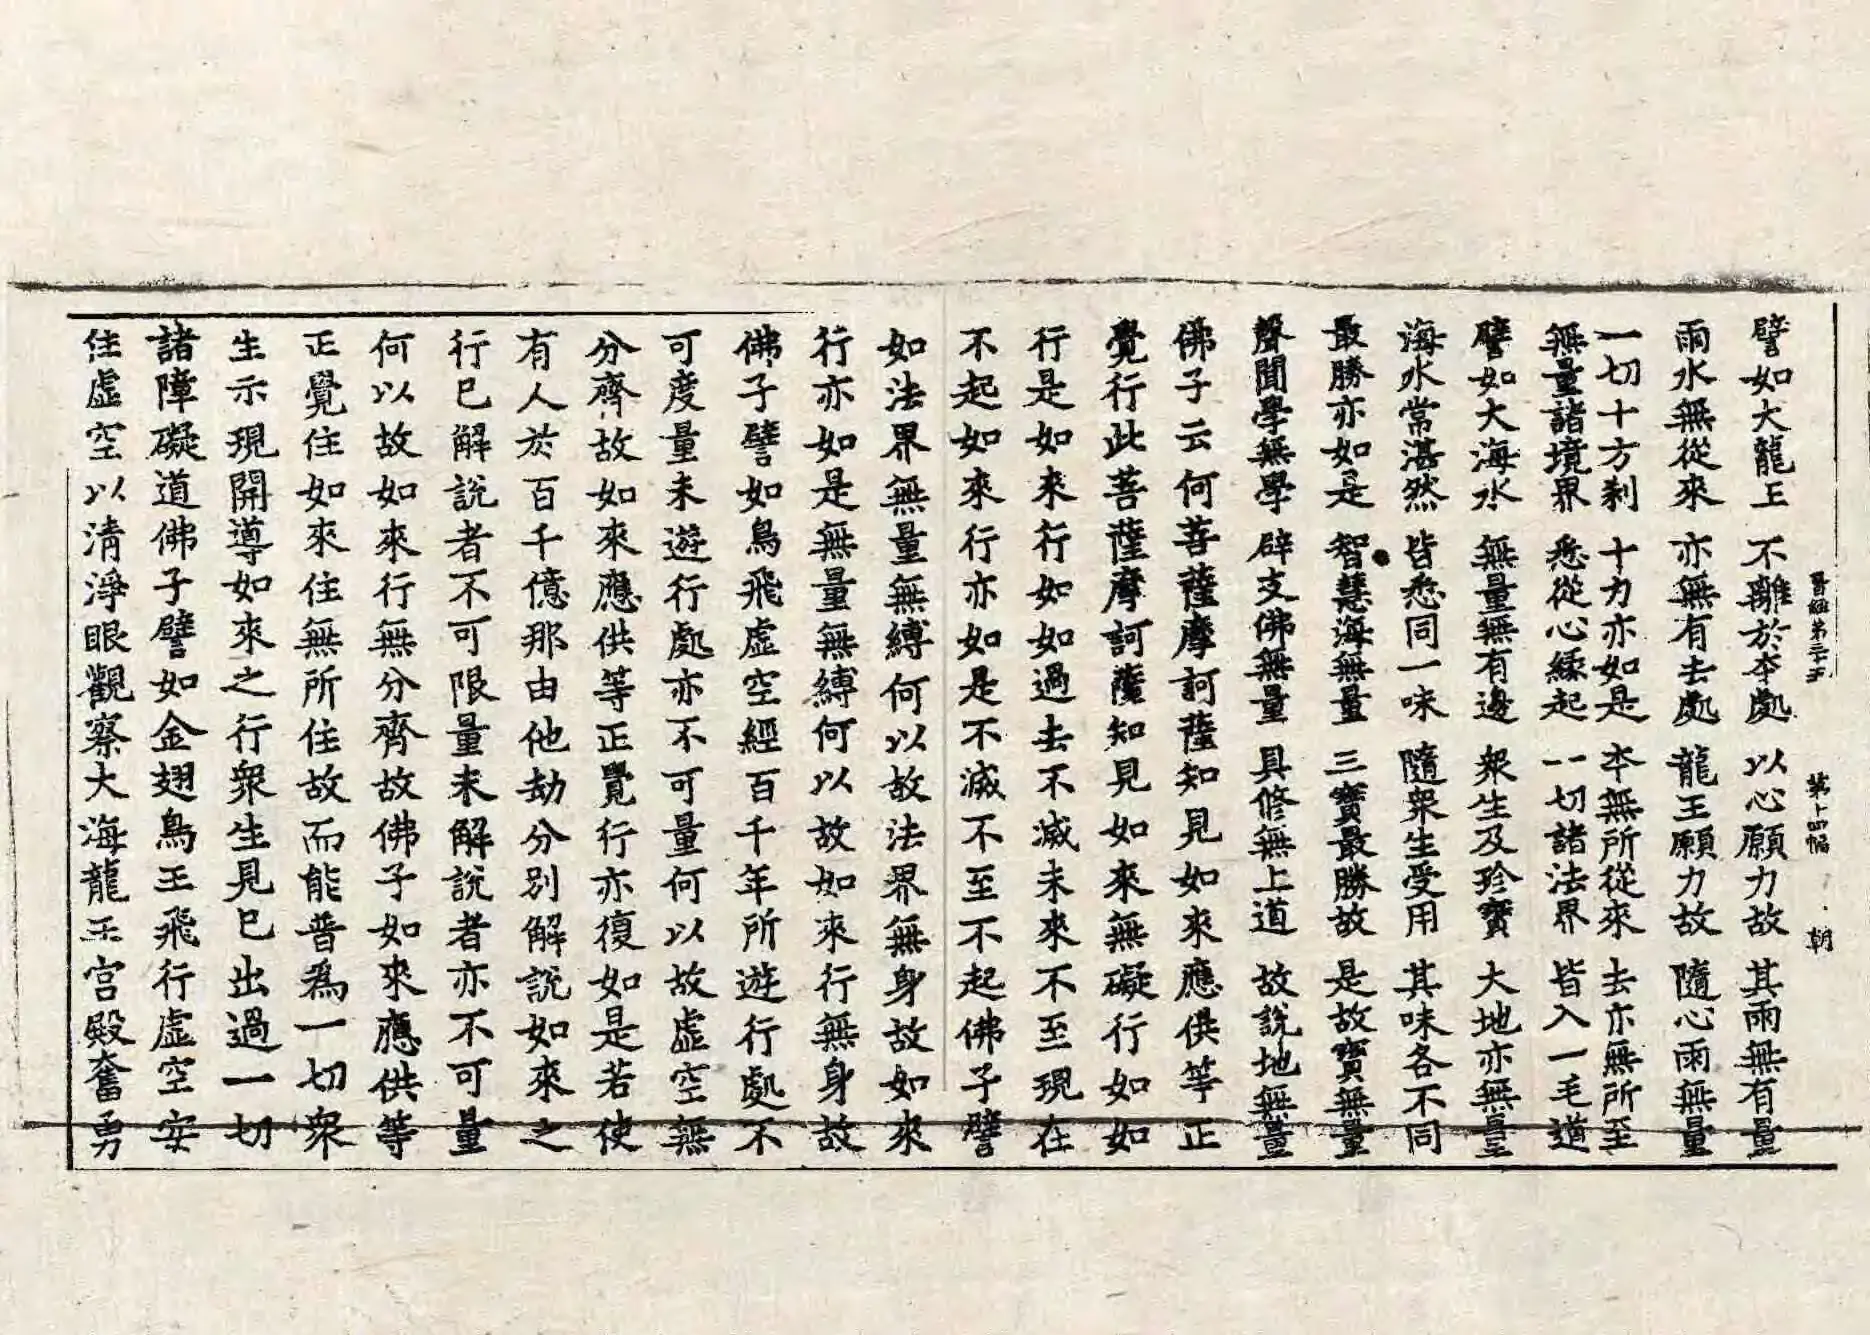 晉經第三十五　第十四幅　朝
譬如大龍王　不離於本處　以心願力故　其雨無有量
雨水無從來　亦無有去處　龍王願力故　隨心雨無量
一切十方刹　十力亦如是　本無所從來　去亦無所至
無量諸境界　悉從心緣起　一切諸法界　皆入一毛道
譬如大海水　無量無有邊　衆生及珍寶　大地亦無量
海水常湛然　皆悉同一味　隨衆生受用　其味各不同
最勝亦如是　智慧海無量　三寶最勝故　是故寶無量
聲聞學無學　辟支佛無量　具修無上道　故說地無量
佛子云何菩薩摩訶薩知見如來應供等正
覺行此菩薩摩訶薩知見如來無礙行如如
行是如來行如如過去不滅未來不至現在
不起如來行亦如是不滅不至不起佛子譬
如法界無量無縛何以故法界無身故如來
行亦如是無量無縛何以故如來行無身故
佛子譬如鳥飛虛空經百千年所遊行處不
可度量未遊行處亦不可量何以故虛空無
分齊故如來應供等正覺行亦復如是若使
有人於百千億那由他劫分別解說如來之
行已解說者不可限量未解說者亦不可量
何以故如來行無分齊故佛子如來應供等
正覺住如來住無所住故而能普爲一切衆
生示現開導如來之行衆生見已出過一切
諸障礙道佛子譬如金翅鳥王飛行虛空安
住虛空以清淨眼觀察大海龍王宮殿奮勇